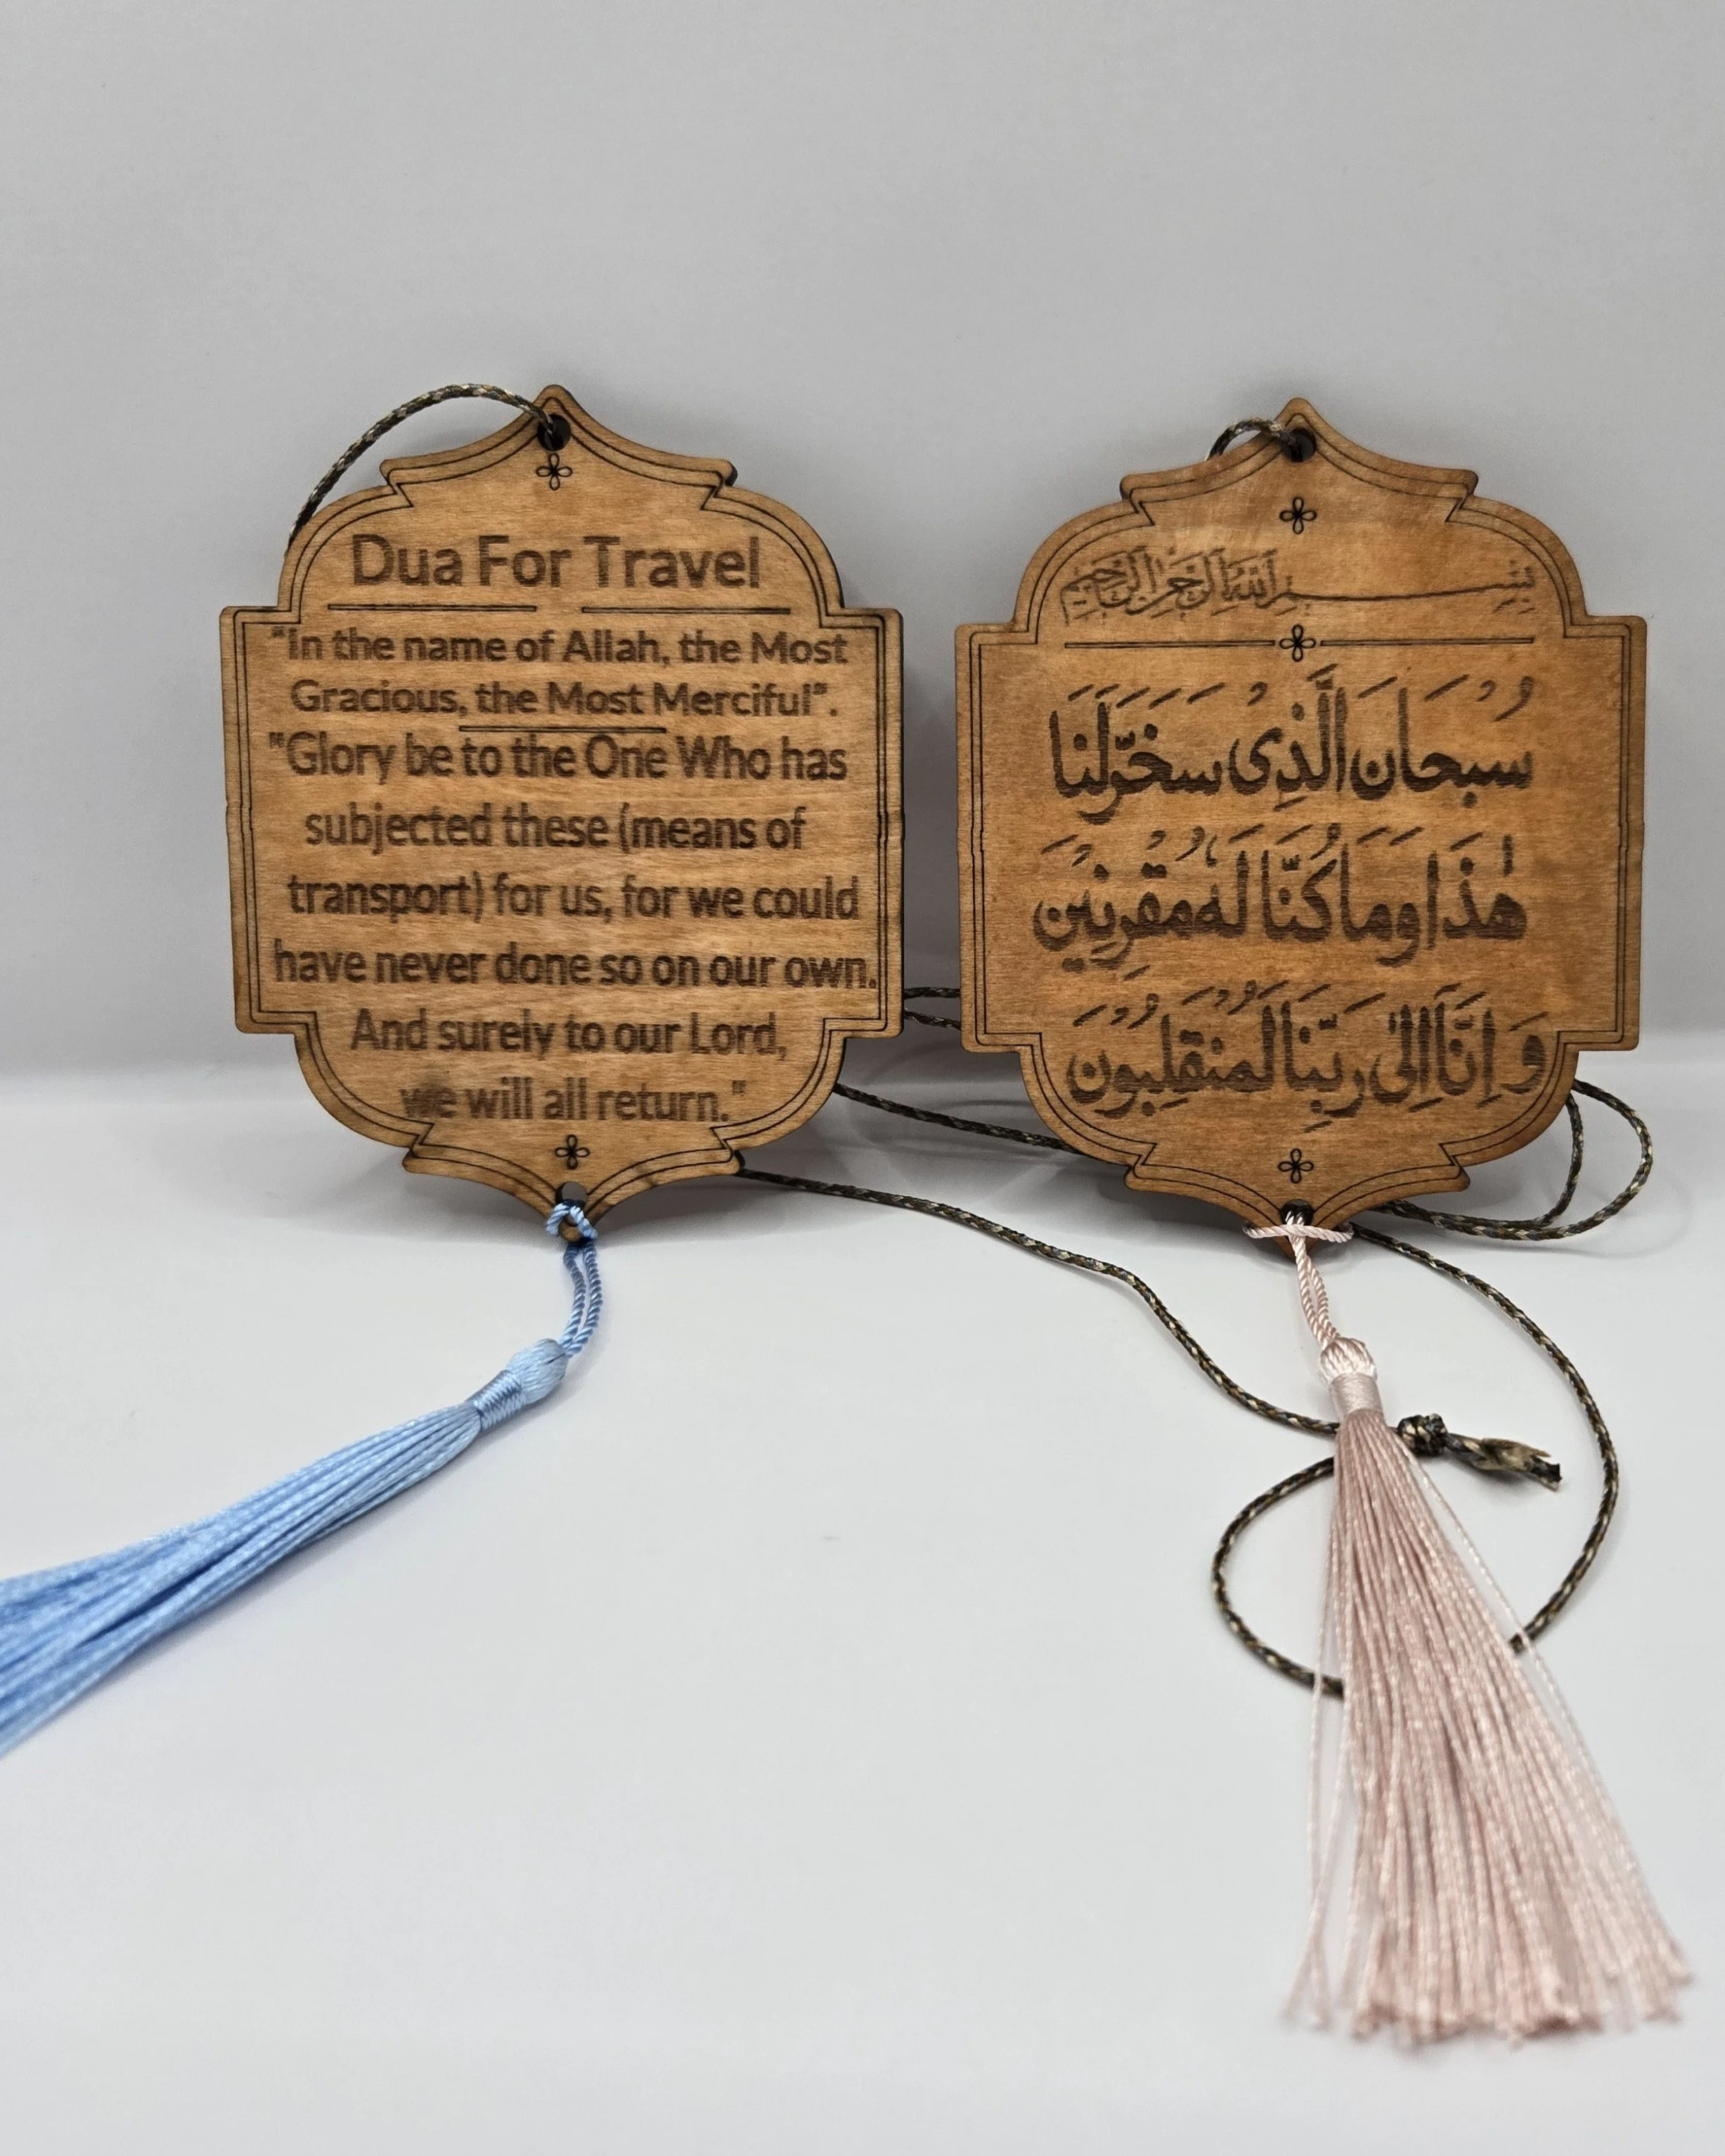 Dua For Travel
"In the name of Allah, the Most
Gracious, the Most Merciful".
"Glory be to the One Who has
subjected these (means of
transport) for us, for we could
have never done so on our own.
And surely to our Lord,
we will all return."
بِسْمِ اللَّهِ الرَّحْمَٰنِ الرَّحِيمِ
سُبْحَانَ الَّذِى سَخَّرَ لَنَا
هٰذَا وَمَا كُنَّا لَهُ مُقْرِنِيْنَ
وَ اِنَّآ اِلٰى رَبِّنَا لَمُنْقَلِبُوْنَ